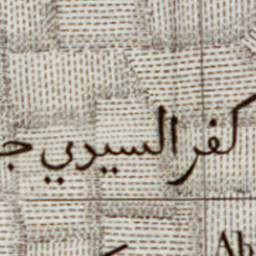 كفر السيدي ج
Ab